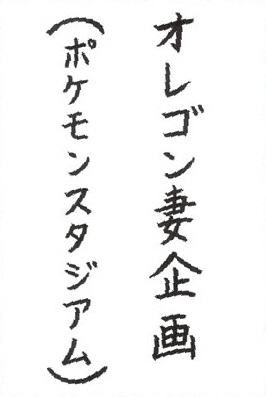 オレゴン妻企画
（ポケモンスタジアム）